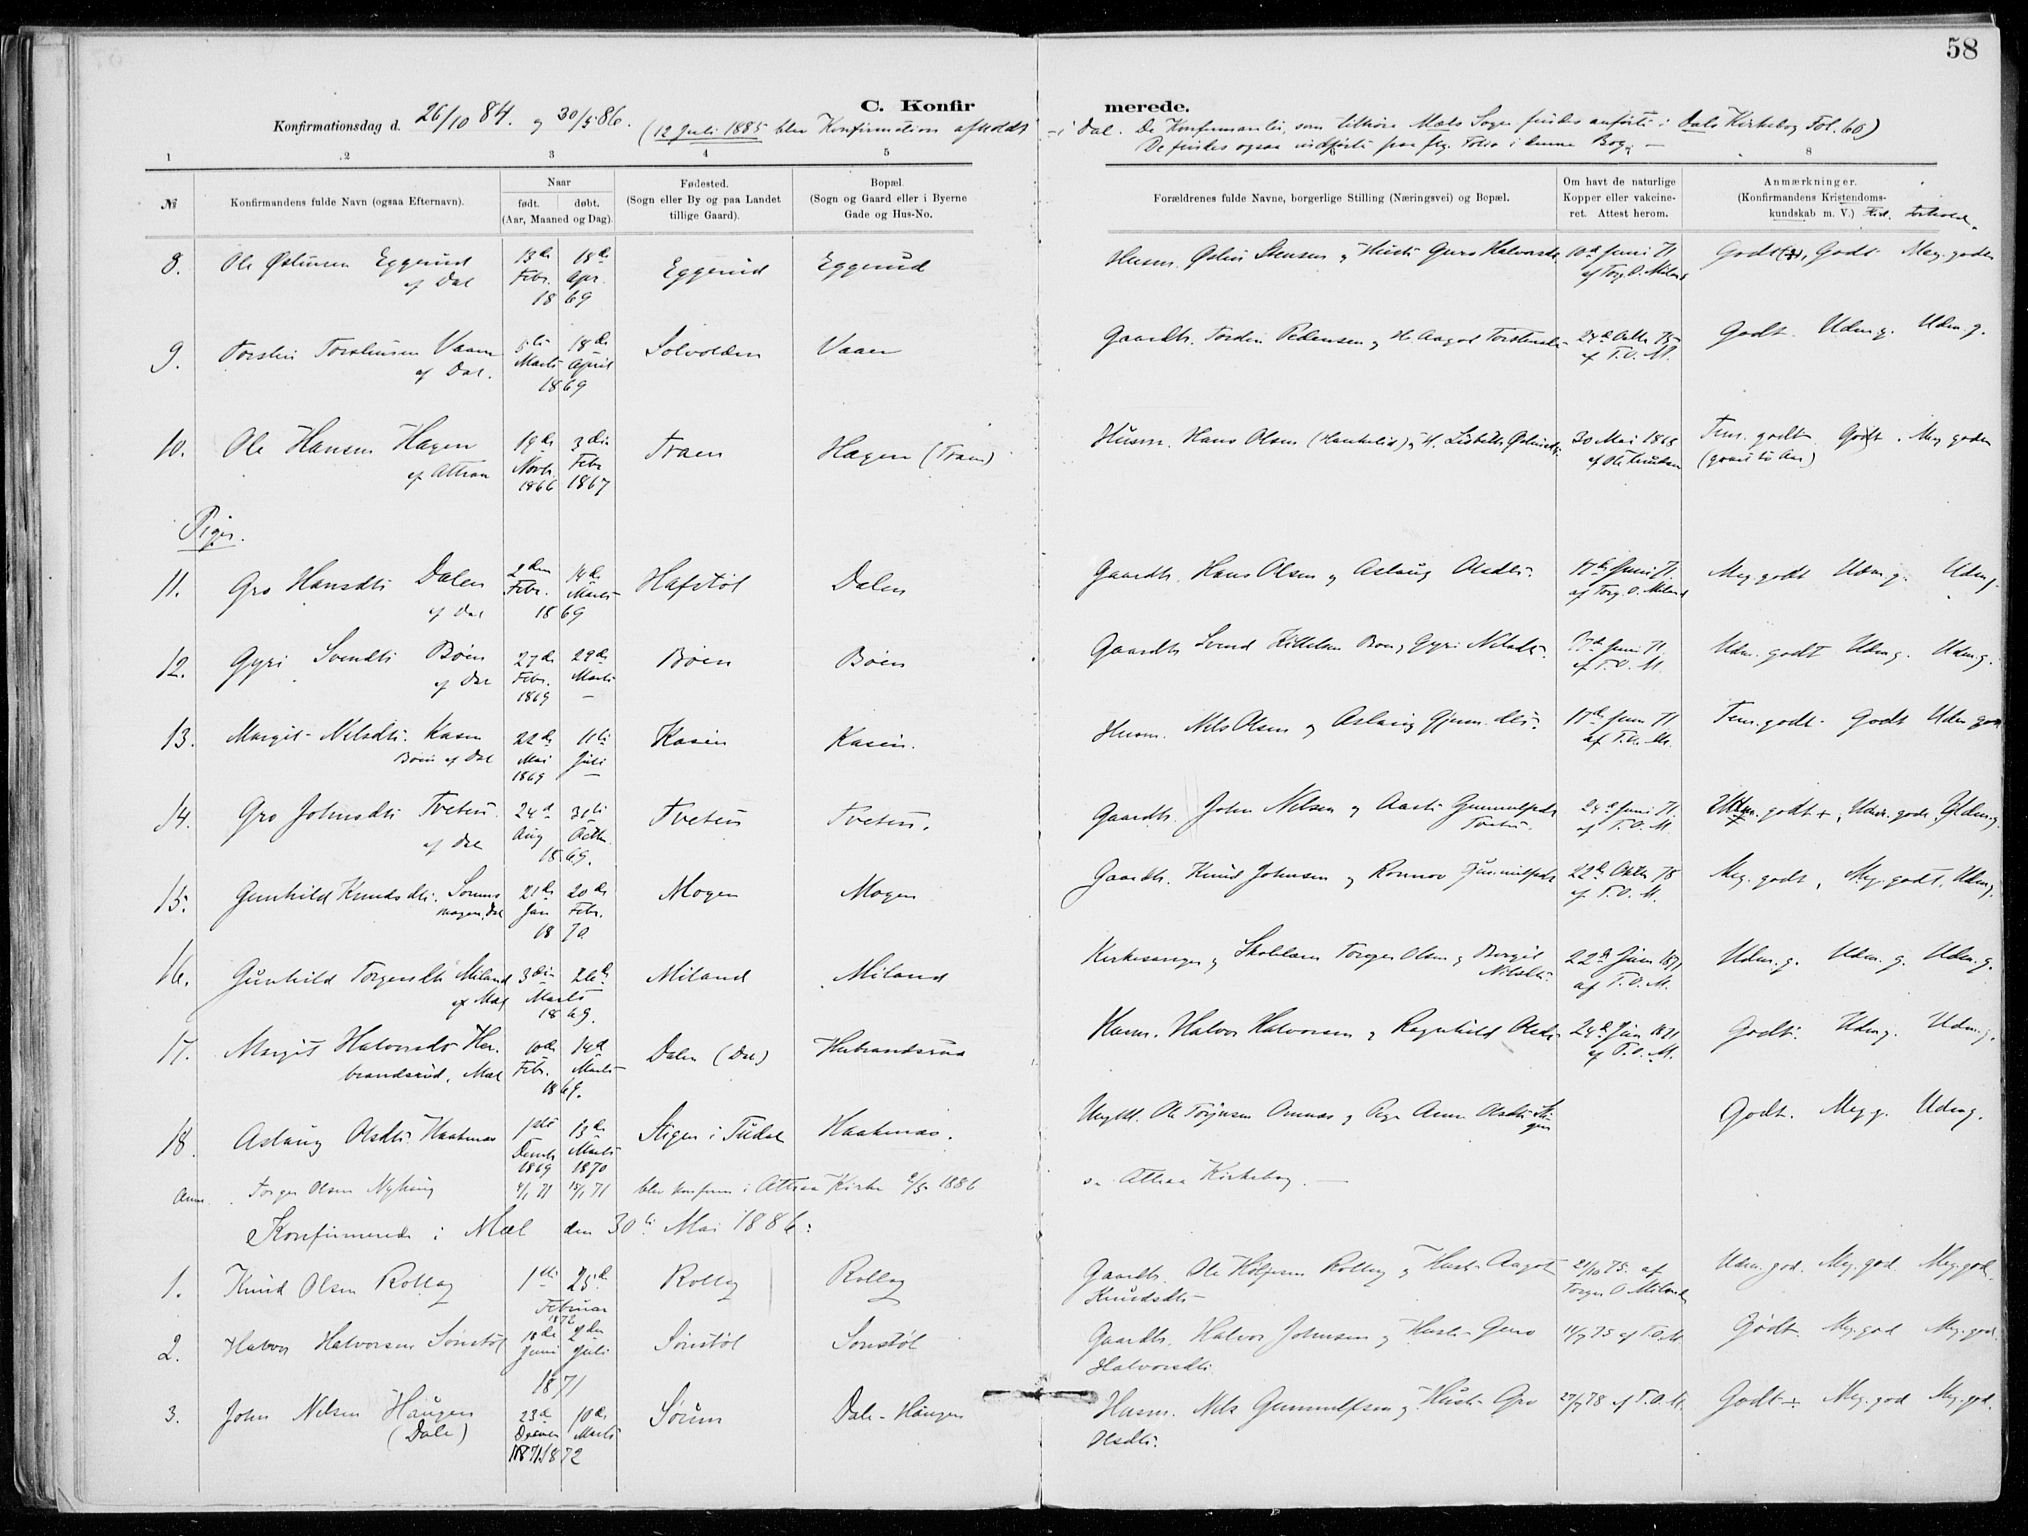 58
C. Konfirmerede.
Konfirmationsdag d. 26/10 84. og 30/5 86. (12 Juli 1885 blev Konfirmation afholdt i Dal. De Konfirmanter, som tilhøre Mæls Sogn findes anførte i Dals Kirkebog Fol. 60)
De findes ogsaa indførte paa flg. Folio i denne Bog. —
1 2 3 4 5 8
№ Konfirmandens fulde Navn (ogsaa Efternavn). Naar født. døbt. (Aar, Maaned og Dag). Fødested. (Sogn eller By og paa Landet tillige Gaard). Bopæl. (Sogn og Gaard eller i Byerne Gade og Hus-No. Forældrenes fulde Navne, borgerlige Stilling (Næringsvei) og Bopæl. Om havt de naturlige Kopper eller vakcineret. Attest herom. Anmærkninger. (Konfirmandens Kristendomskundskab m. V.) Flid. Forhold.
8. Ole Østensen Eggerud af Dal 13de Febr. 18de Apr. 1869 Eggerud Eggerud Husm. Østen Stensen og Hustr Guro Halvorsdtr 10de Juni 71 af Torg. O. Miland Godt, Godt Meg. godt
9. Torsten Torstensen Vaaer af Dal. 5te Marts 18de April 1869 Solvolden Vaaer Gaardbr. Torsten Pedersen og H. Aagot Torstensdtr 24de Octbr 75 af T. O. M. Godt. Udm. g. Udm. g.
10. Ole Hansen Hagen af Attraa 19de Novbr. 1866 3die Febr 1867 Traen Hagen (Traen) Husm. Hans Olsen (Haukelid) og H. Lisbeth 30 Mai 1868 Tem. godt Godt. Meg. godt
Piger.
11. Gro Hansdtr Dalen af Dal 2den Febr. 14de Marts 1869 Hafstøl Dalen Gaardbr. Hans Olsen og Aslaug Olsdtr. 17de Juni 71. af Torg. O. Miland Meg. godt Udm. g. Udm. g.
12. Gyri Svendtr Bøen af Dal 27de Febr. 1869 29de Marts — Bøen Bøen Gaardbr Svend Kittelsen Bøen og Gyri Nilsdtr. 17de Juni 71. af T. O. M. Udm. godt Udm g. Udm. g.
13. Margit Nilsdtr. Kasen Bøen af Dal 22de Mai 1869 11te Juli — Kasen Kasen. Husm. Nils Olsen og Aslaug Gjerm.dtr. 17de Juni 71 af T. O. M. Tem. godt. Godt Udm. godt
14. Gro Johnsdtr Tveten. af Dal 24de Aug 31te Octbr. 1869. Tveten Tveten. Gaardbr. John Nilsen og Aaste Gunnulfsdtr Tveten. 24de Juni 71. af T. O. M. Udm. godt +, Udm. godt, Udm. g.
15. Gunhild Knudsdtr. Sønnemogen. Dal 21de Jan 20de Febr. 1870 Mogen Mogen Gaardbr. Knud Johnsen og Rønnov Gunnulfsdtr 22de Oktbr 75 af T. O. M. Meg. godt, Meg. godt. Udm. g.
16. Gunhild Torgersdtr Miland af Mæl 3die 26de Marts 1869. Miland Miland Kirkesanger og Skolelærer Torger Olsen og Bergit Nilsdtr. 22de Juni 1871 af T. O. M. Udm. g. Udm. g. Udm. g.
17. Margit Halvorsdtr Herbrandsrud. Mæl 10de Febr. 14de Marts 1869. Dalen (Dal) Herbrandsrud Husm. Halvor Halvorsen og Ragnhild Olsdtr 24de Juni 1871 af T. O. M. Godt. Udm g. Udm. g.
18. Aslaug Olsdtr. Haakenæs 1ste Decmbr 1869 13de Marts 1870 Stigen i Tudal Haakenæs. Ungkl. Ole Torjusen Omnæs og Pige Anne Olsdtr Stigen Godt. Meg g. Udm g.
Anm. Torger Olsen Nyhuus 4/1 71 15/1 71 blev konfirm. i Attraa Kirke 9/5 1886 se Attraa Kirkebog. —
Konfirmerede i Mæl den 30te Mai 1886:
1. Knud Olsen Rollag 1ste 25de Februar 1872 Rollag Rollag Gaardbr. Ole Rollag og Hustr. Aagot Knudsdtr 21/10 75. af Torger O. Miland Udm. god. Meg. god. Meg. god.
2. Halvor Halvorsen Sønstøl 18de Juni 2den Juli 1871 Sønstøl Sønstøl Gaardbr. Halvor Johnsen og Hustr. Guro Halvorsdtr. 11/7 75 af T. O. M Godt. Meg. god Meg. god.
3. John Nilsen Haugen (Dale) 23de Decmbr 1871 10de Marts 1872 Sørum Dale-Haugen Husm. Nils Gunnulfsen og Hustr. Gro Olsdtr. 27/7 78 af T. O. M. Godt +. Meg. god Meg. god.